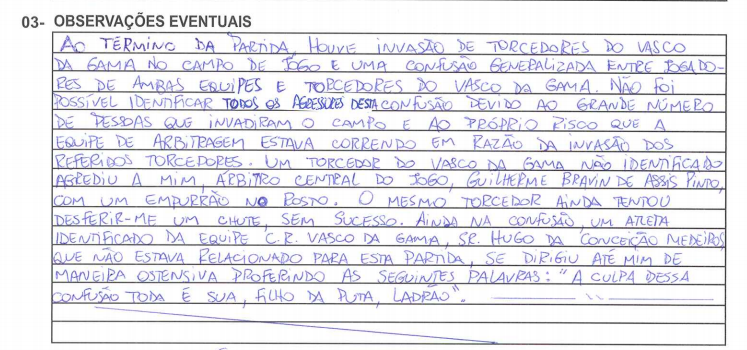 03- OBSERVAÇÕES EVENTUAIS
AO TÉRMINO DA PARTIDA, HOUVE INVASÃO DE TORCEDORES DO VASCO
DA GAMA NO CAMPO DE JOGO E UMA CONFUSÃO GENERALIZADA ENTRE JOGADO-
RES DE AMBAS EQUIPES E TORCEDORES DO VASCO DA GAMA. NÃO FOI
POSSÍVEL IDENTIFICAR TODOS OS AGRESSORES DESTA CONFUSÃO DEVIDO AO GRANDE NÚMERO
DE PESSOAS QUE INVADIRAM O CAMPO E AO PRÓPRIO RISCO QUE A
EQUIPE DE ARBITRAGEM ESTAVA CORRENDO EM RAZÃO DA INVASÃO DOS
REFERIDOS TORCEDORES. UM TORCEDOR DO VASCO DA GAMA NÃO IDENTIFICADO
AGREDIU A MIM, ÁRBITRO CENTRAL DO JOGO, GUILHERME BRAVIN DE ASSIS PINTO,
COM UM EMPURRÃO NO ROSTO. O MESMO TORCEDOR AINDA TENTOU
DESFERIR-ME UM CHUTE, SEM SUCESSO. AINDA NA CONFUSÃO, UM ATLETA
IDENTIFICADO DA EQUIPE C.R. VASCO DA GAMA, SR. HUGO DA CONCEIÇÃO MEDEIROS
QUE NÃO ESTAVA RELACIONADO PARA ESTA PARTIDA, SE DIRIGIU ATÉ MIM DE
MANEIRA OSTENSIVA PROFERINDO AS SEGUINTES PALAVRAS: "A CULPA DESSA
CONFUSÃO TODA É SUA, FILHO DA PUTA, LADRÃO".